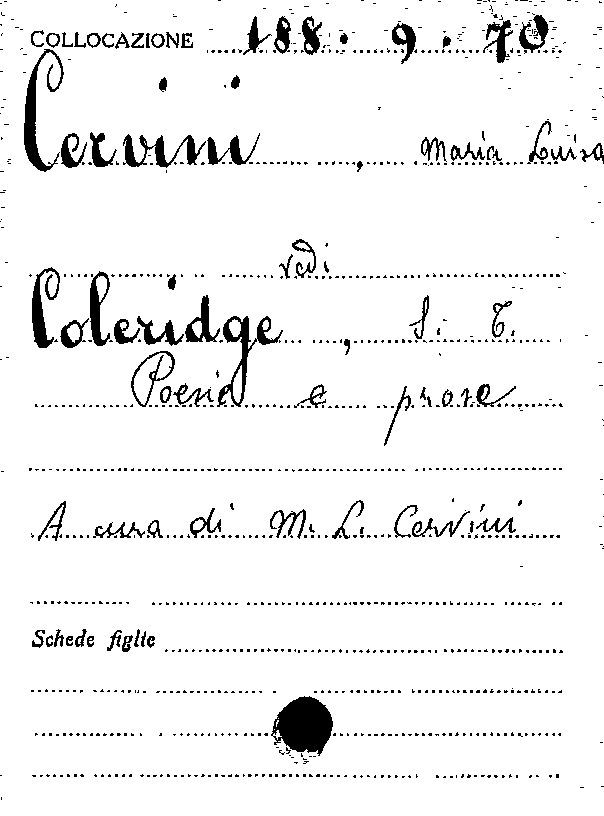 COLLOCAZIONE 188.9.70
Cervini, Maria Luisa
vedi
Coleridge, S. T.
Poesia e prose
A cura di M. L. Cervini
Schede figlie